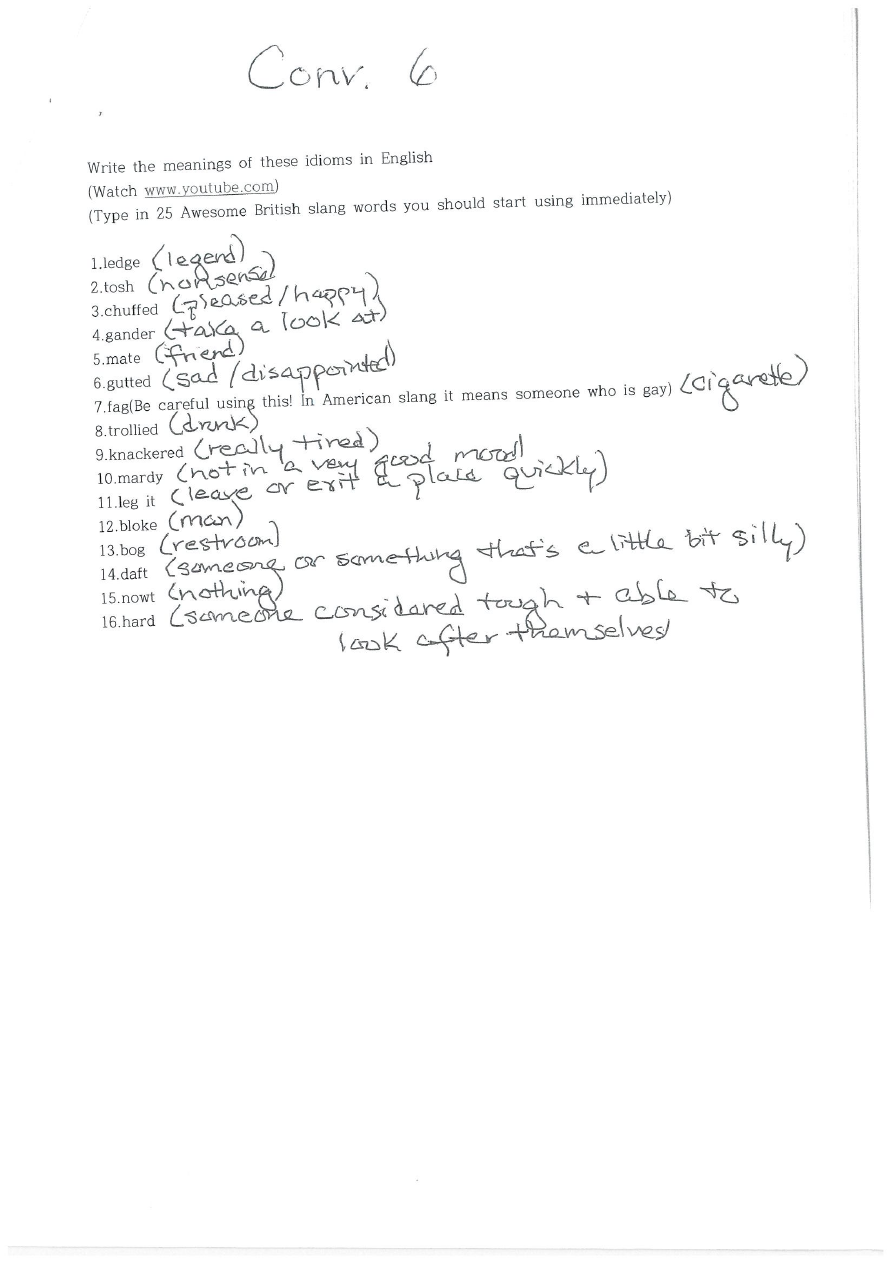 Conv. 6
Write the meanings of these idioms in English
(Watch www.youtube.com)
(Type in 25 Awesome British slang words you should start using immediately)
1.ledge (legend)
2.tosh (nonsense)
3.chuffed (pleased/happy)
4.gander (take a look at)
5.mate (friend)
6.gutted (sad/disappointed)
7.fag(Be careful using this! In American slang it means someone who is gay) (cigarette)
8.trollied (drunk)
9.knackered (really tired)
10.mardy (not in a very good mood)
11.leg it (leave or exit a place quickly)
12.bloke (man)
13.bog (restroom)
14.daft (someone or something that's a little bit silly)
15.nowt (nothing)
16.hard (someone considered tough + able to
look after themselves)